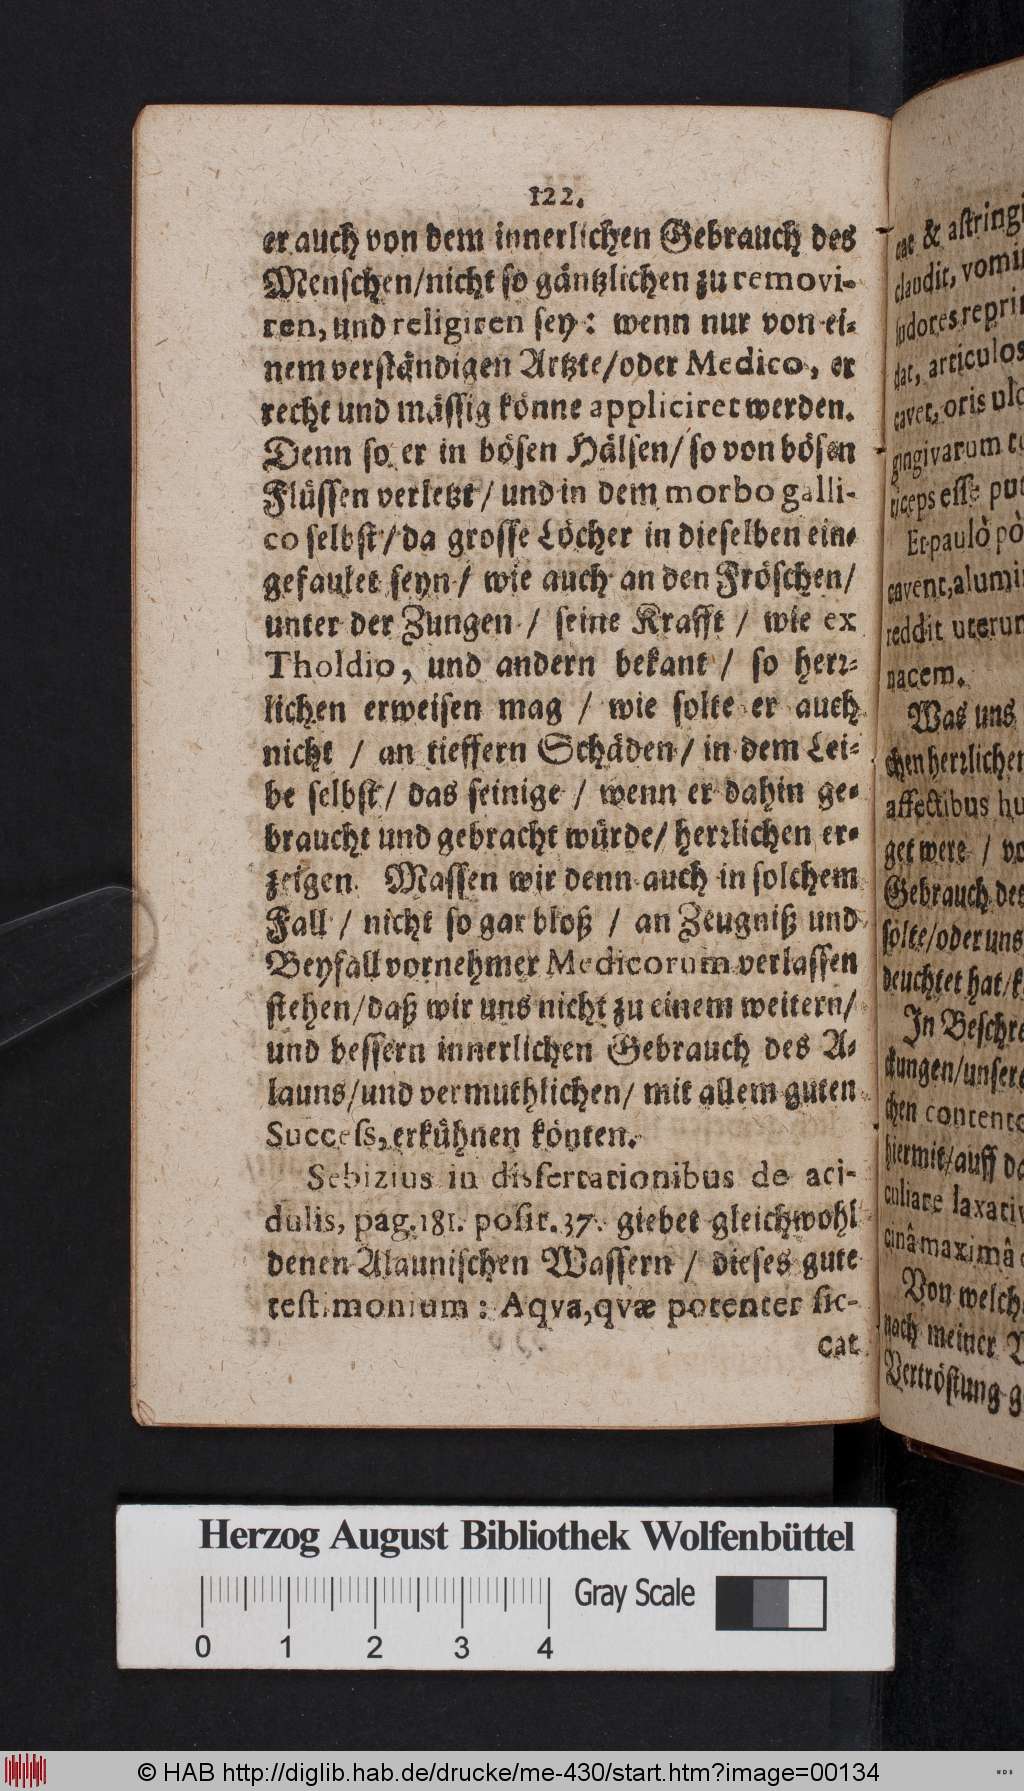 122.
er auch von dem innerlichen Gebrauch des
Menschen/nicht so gäntzlichen zu removi-
ren, und religiren sey: wenn nur von ei-
nem verständigen Artzte/oder Medico, er
recht und mässig könne appliciret werden.
Denn so er in bösen Hälsen/ so von bösen
Flüssen verletzt/ und in dem morbo galli-
co selbst/ da grosse Löcher in dieselben ein-
gefaulet seyn/ wie auch an den Fröschen/
unter der Zungen / seine Krafft / wie ex
Tholdio, und andern bekant / so herr-
lichen erweisen mag / wie solte er auch
nicht / an tieffern Schäden/ in dem Lei-
be selbst/ das seinige / wenn er dahin ge-
braucht und gebracht würde/ herrlichen er-
zeigen. Massen wir denn auch in solchem
Fall / nicht so gar bloß / an Zeugniß und
Beyfall vornehmer Medicorum verlassen
stehen/daß wir uns nicht zu einem weitern/
und bessern innerlichen Gebrauch des A-
launs/und vermuthlichen/ mit allem guten
Success, erkühnen könten.
Sebizius in dissertationibus de aci-
dulis, pag. 181. posit. 37. giebet gleichwohl
denen Alaunischen Wassern / dieses gute
testimonium : Aqva, qvæ potenter sic-
cat
eae & astringi
claudit, vomi
sudores repri
dat, articulos
cavet, oris ulc
gingivarum
riceps esse put
Et paulò pò
cavent, alumi
reddit uterum
nacem.
Was uns
chen herrlichen
affectibus hu
get were / vo
Gebrauch des
solte/oder uns
deuchtet hat/
In Beschre
ckungen/unsere
chen contento
hiermit/auff da
culiare laxativ
cinâ maximâ
Von welch
nach meiner
Vertröstung g
Herzog August Bibliothek Wolfenbüttel
Gray Scale
0 1 2 3 4
© HAB http://diglib.hab.de/drucke/me-430/start.htm?image=00134